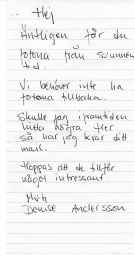 .. Hej
Äntligen får du
fotona från svunnen
tid.
Vi behöver inte ha
fotona tillbaka.
Skulle jag i framtiden
hitta några fler
så har jag kvar ditt
mail.
Hoppas att de tillför
något intressant
Mvh
Denise Andersson